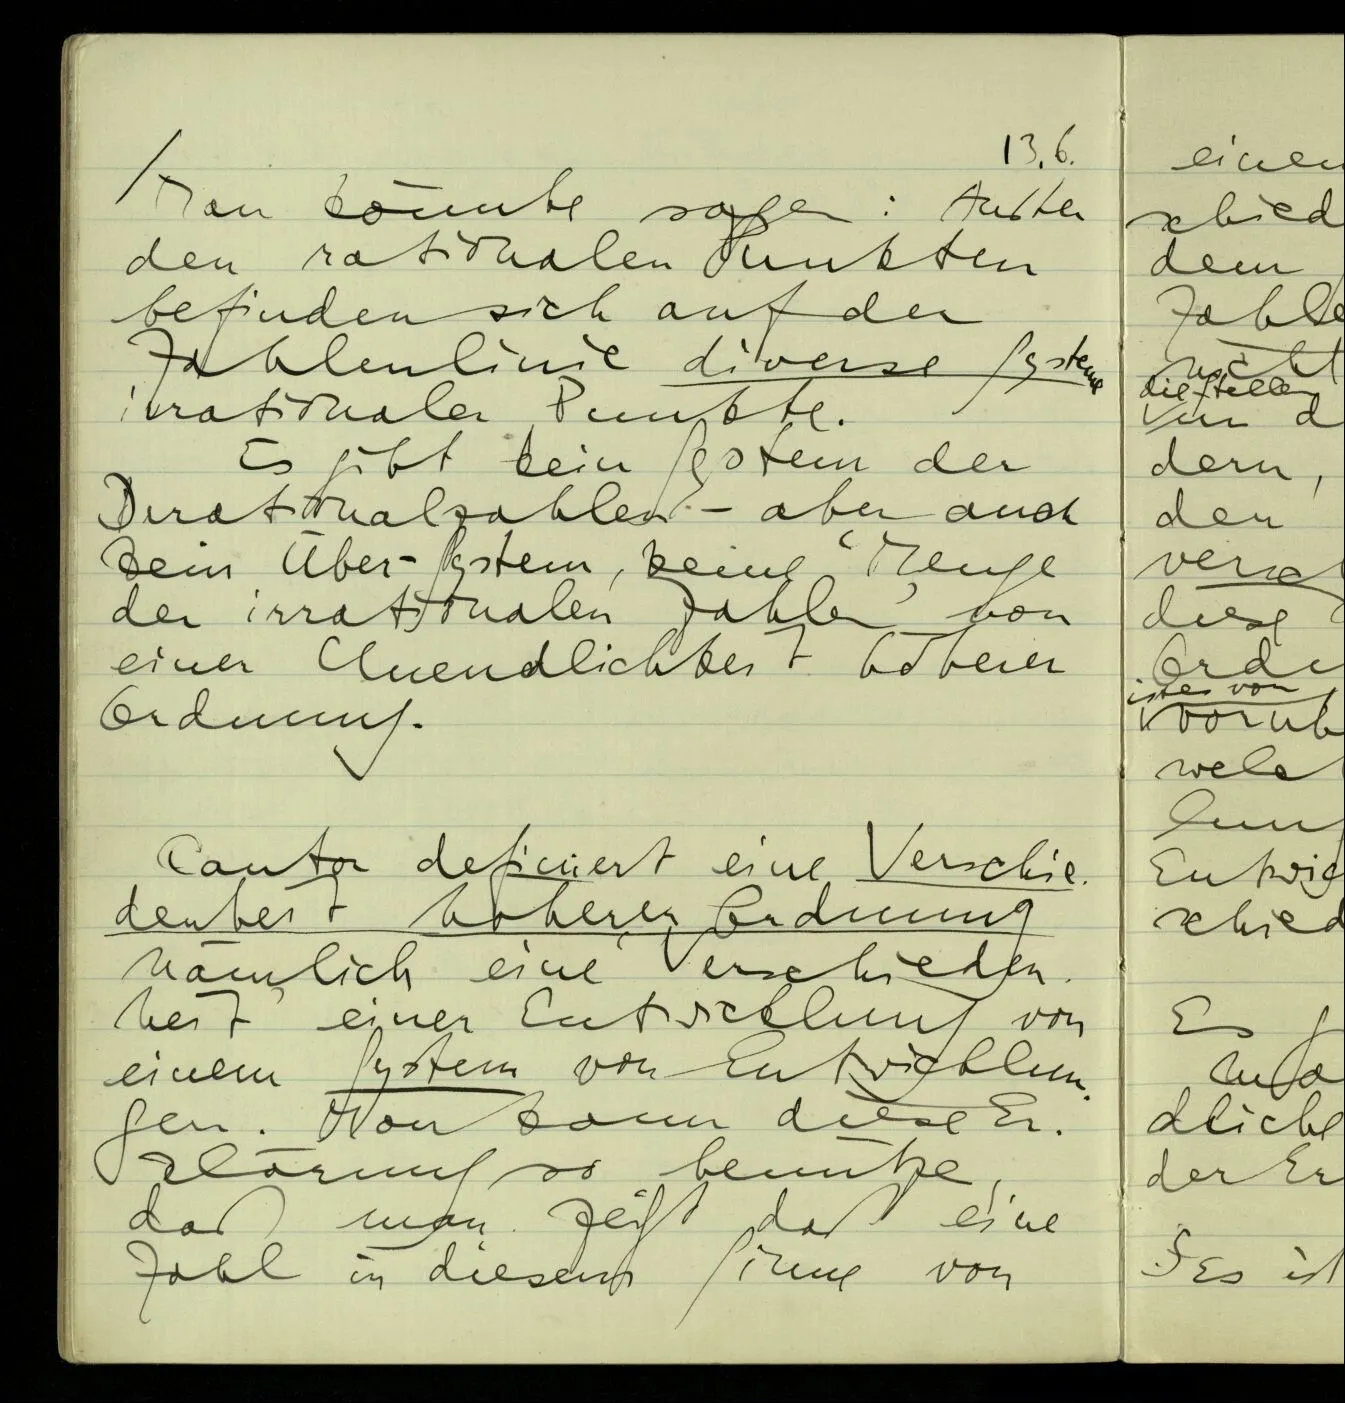 13.6.
/ Man könnte sagen: Außer
den rationalen Punkten
befinden sich auf der
Zahlenlinie diverse Systeme
irrationaler Punkte.
Es gibt kein System der
Irrationalzahlen – aber auch
kein Über-System, keine 'Menge
der irrationalen Zahlen' von
einer Unendlichkeit höherer
Ordnung.
Cantor definiert eine Verschie-
denheit höherer Ordnung
nämlich eine 'Verschieden-
heit' einer Entwicklung von
einem System von Entwicklun-
gen. Man kann diese Er-
klärung so benütze,
daß man zeigt daß eine
Zahl in diesem Sinne von
einen
schied
dem
Zahle
nicht
die Stelle
von d
dern,
den
versch
diese
Ordn
ist es von
welc
lung
Entwic
schied
Es
dliche
der Er
§Es ist